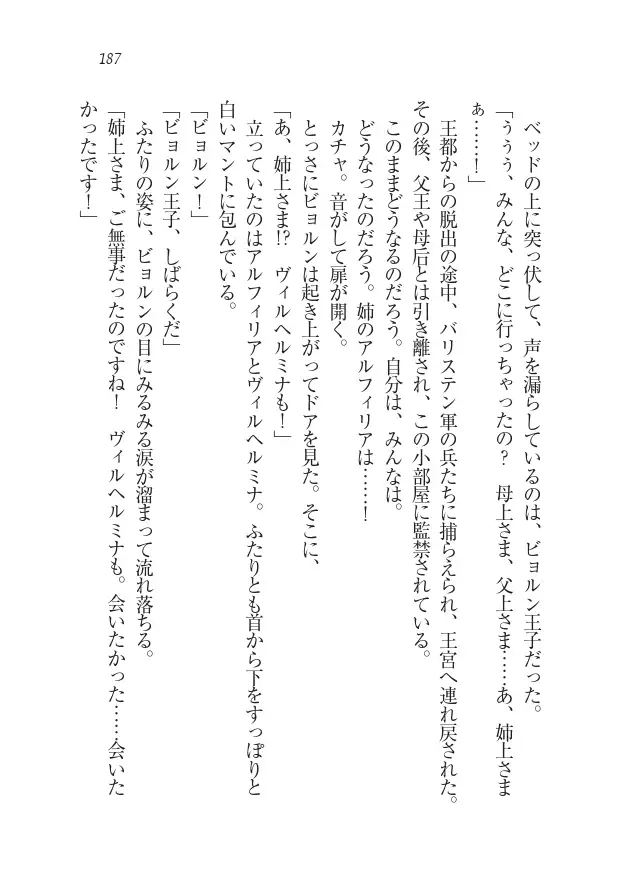 187
ベッドの上に突っ伏して、声を漏らしているのは、ビョルン王子だった。
「ぅぅぅ、みんな、どこに行っちゃったの？　母上さま、父上さま……あ、姉上さま
ぁ……！」
王都からの脱出の途中、バリステン軍の兵たちに捕らえられ、王宮へ連れ戻された。
その後、父王や母后とは引き離され、この小部屋に監禁されている。
このままどうなるのだろう。自分は、みんなは。
どうなったのだろう。姉のアルフィリアは……！
カチャ。音がして扉が開く。
とっさにビョルンは起き上がってドアを見た。そこに、
「あ、姉上さま!?　ヴィルヘルミナも！」
立っていたのはアルフィリアとヴィルヘルミナ。ふたりとも首から下をすっぽりと
白いマントに包んでいる。
「ビョルン！」
「ビョルン王子、しばらくだ」
ふたりの姿に、ビョルンの目にみるみる涙が溜まって流れ落ちる。
「姉上さま、ご無事だったのですね！　ヴィルヘルミナも。会いたかった……会いた
かったです！」